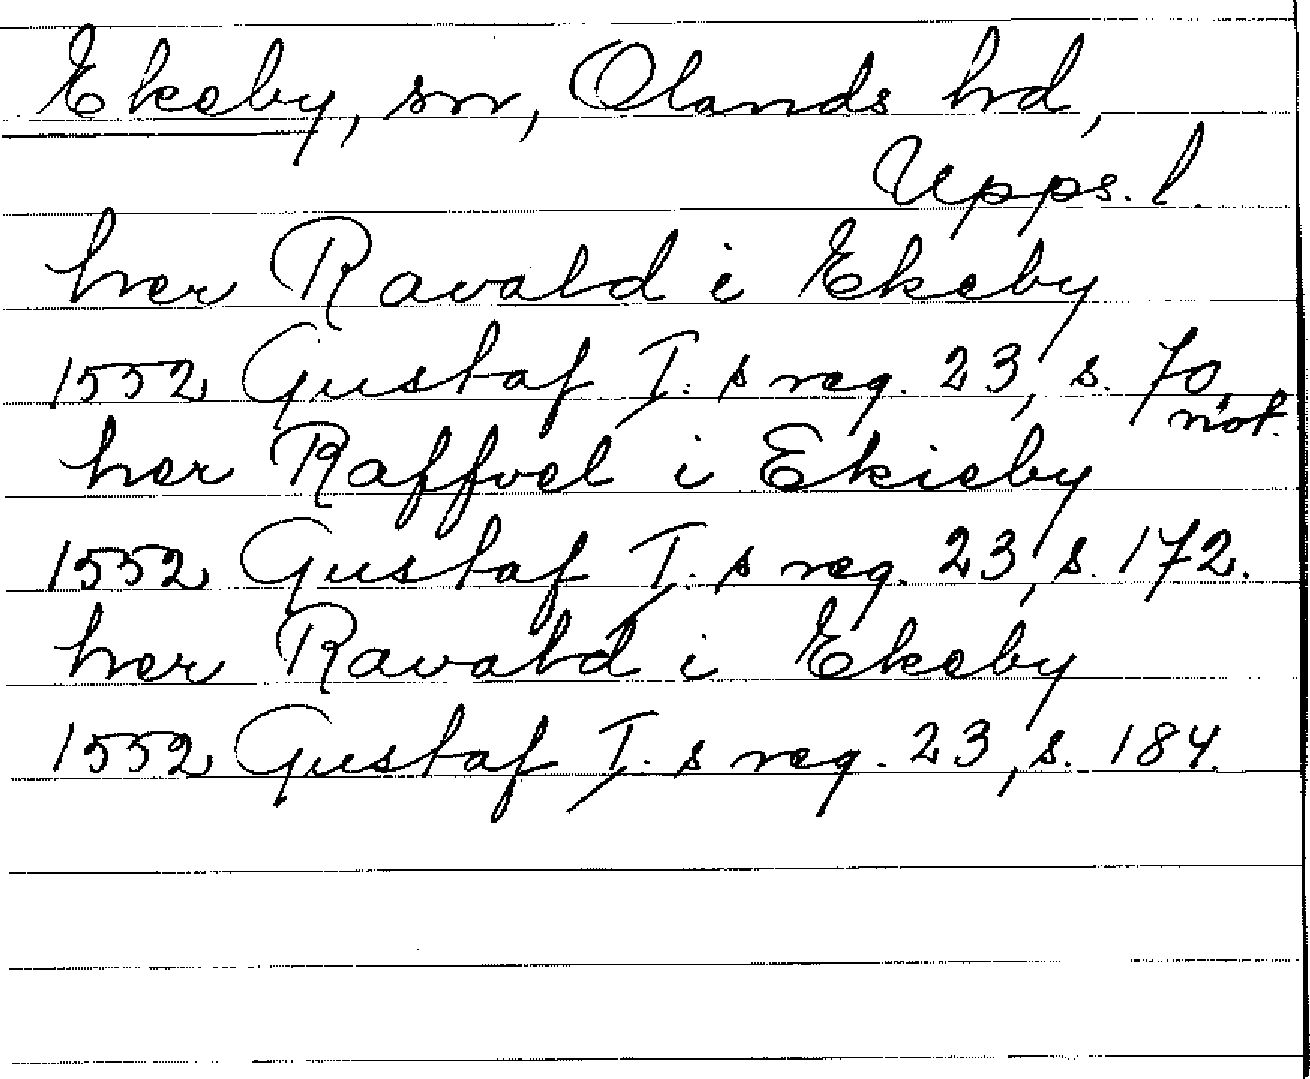 Ekeby, sn, Olands hd,
Upps. l.
her Ravald i Ekeby
1552 Gustaf I. s reg. 23, s. 70,
not.
her Raffvel i Ekieby
1552 Gustaf I. s reg. 23, s. 172.
her Ravald i Ekeby
1552 Gustaf I. s reg. 23, s. 184.